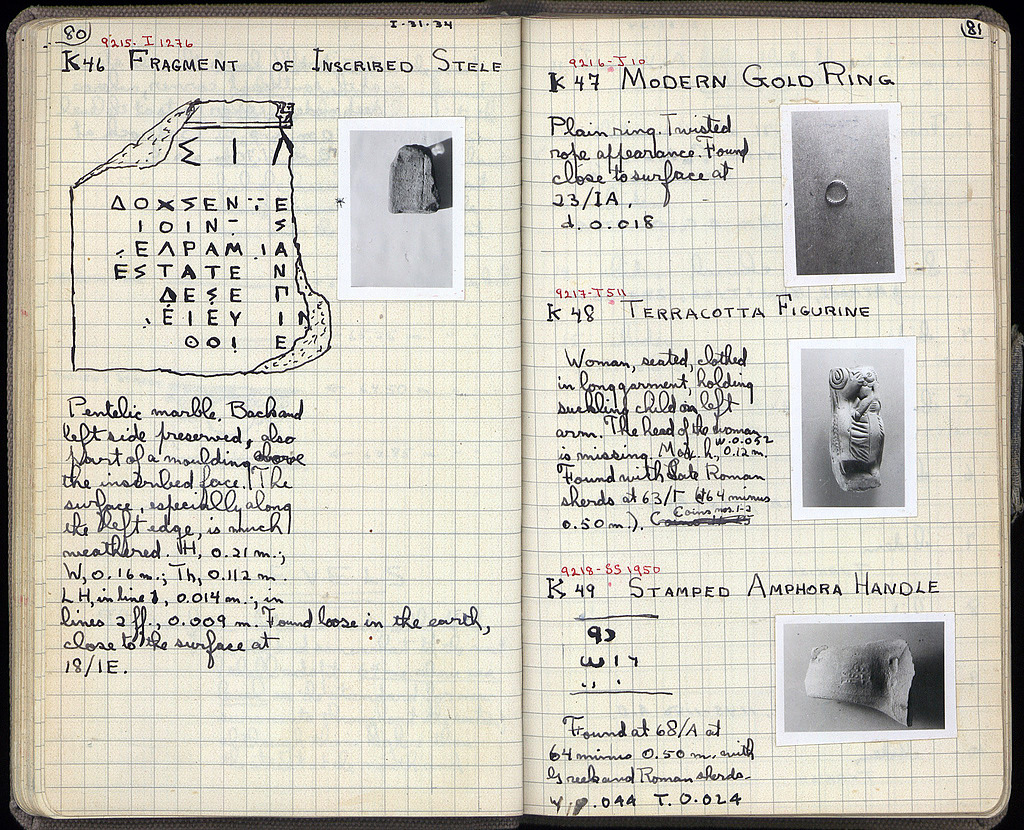 80
I-31-34
9215-I 1276
K46 FRAGMENT OF INSCRIBED STELE
Σ Ι Λ
Δ Ο Χ Σ Ε Ν Τ Ε
Ι Ο Ι Ν Σ
Ε Λ Ρ Α Μ Ι Α
Ε Σ Τ Α Τ Ε Ν
Δ Ε Σ Ε Γ
Ε Ι Ε Υ Ι Ν
Ο Ο Ι Ε
Pentelic marble. Back and
left side preserved, also
part of a moulding above
the inscribed face. The
surface, especially along
the left edge, is much
weathered. H, 0.21 m.;
W, 0.16 m.; Th, 0.112 m.
LH, in line 1, 0.014 m.; in
lines 2 ff., 0.009 m. Found loose in the earth,
close to the surface at
18/IE.
81
9216-J10
K 47 MODERN GOLD RING
Plain ring. Twisted
rope appearance. Found
close to surface at
23/IA.
d. 0.018
9217-T511
K 48 TERRACOTTA FIGURINE
Woman, seated, clothed
in long garment, holding
suckling child on left
arm. The head of the woman
is missing. Max. h, 0.12 m.
W. 0.052
Found with late Roman
sherds at 63/Γ (64 minus
0.50 m.). Coins nos. 1-2
9218-SS 1950
K 49 STAMPED AMPHORA HANDLE
Found at 68/A at
64 minus 0.50 m. with
Greek and Roman sherds.
0.044 T. 0.024